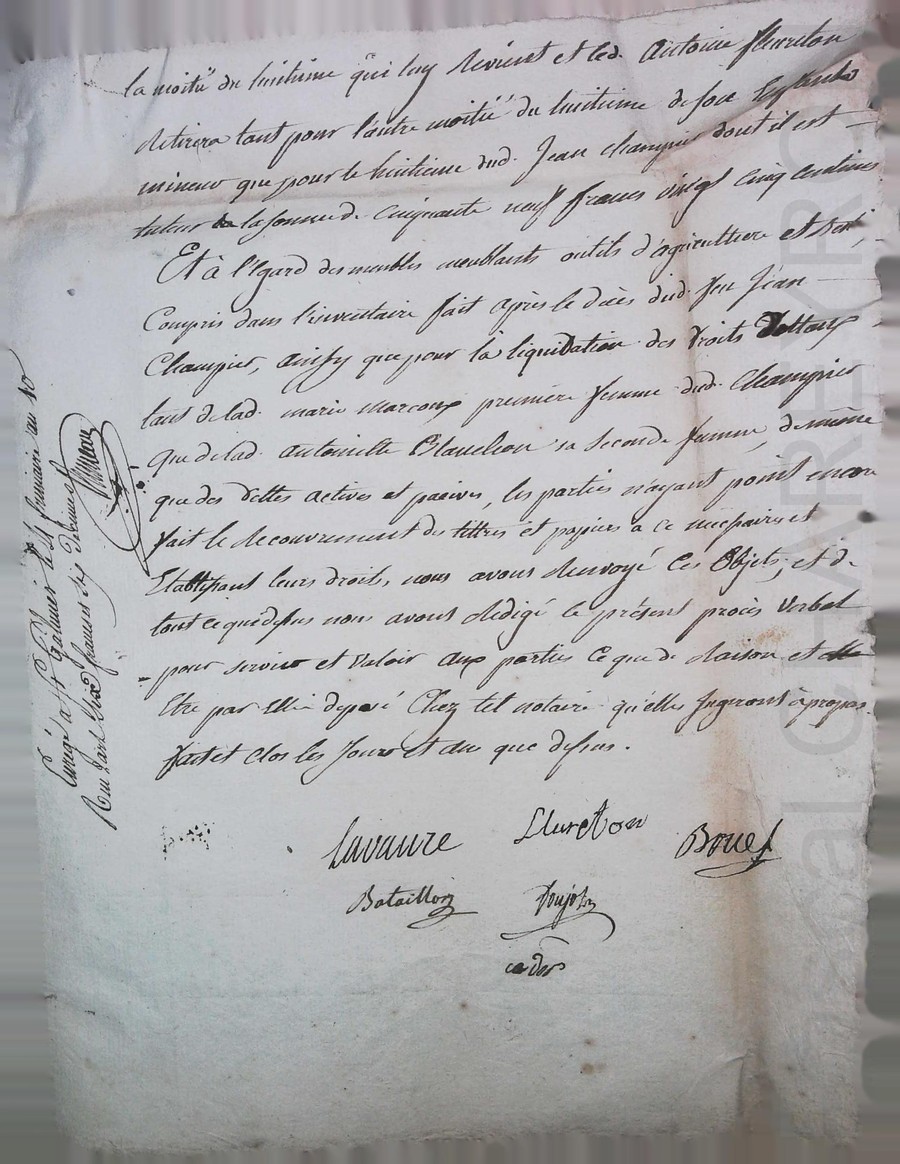 la moitié du huitieme qui luy revient et led. Antoine fleureton
Retirera tant pour l'autre moitié du huitieme de son
mineur que pour le huitieme dud. Jean champier dont il est
tuteur la somme de cinquante neuf francs vingt cinq centimes
Et à l'Egard des meubles meublants outils d'agriculture et
Compris dans l'inventaire fait après le décès dud. feu Jean
Champier, ainsy que pour la liquidation des Droits
tant de lad. marie marcoux première femme dud. Champier
que de lad. antoinette sa seconde femme, de même
que des dettes actives et passives, les parties n'ayant point encore
fait le recouvrement des tittres et papiers a ce nécessaires et
Etablissant leurs droits, nous avons Renvoyé Ces Objets, et de
tout ce que dessus nous avons Rédigé le présent procès Verbal
pour servir et valoir aux parties ce que de Raison et
Etre par Elles déposé Chez tel notaire qu'elles Jugeront àpropos.
fait et clos les Jour et an que dessus.
Lavaure
fleureton
Bouef
Bataillon
Enregé à St Galmier le
Reçu francs